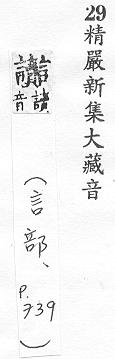 29精嚴新集大藏音
音諸
(言部、P.739)